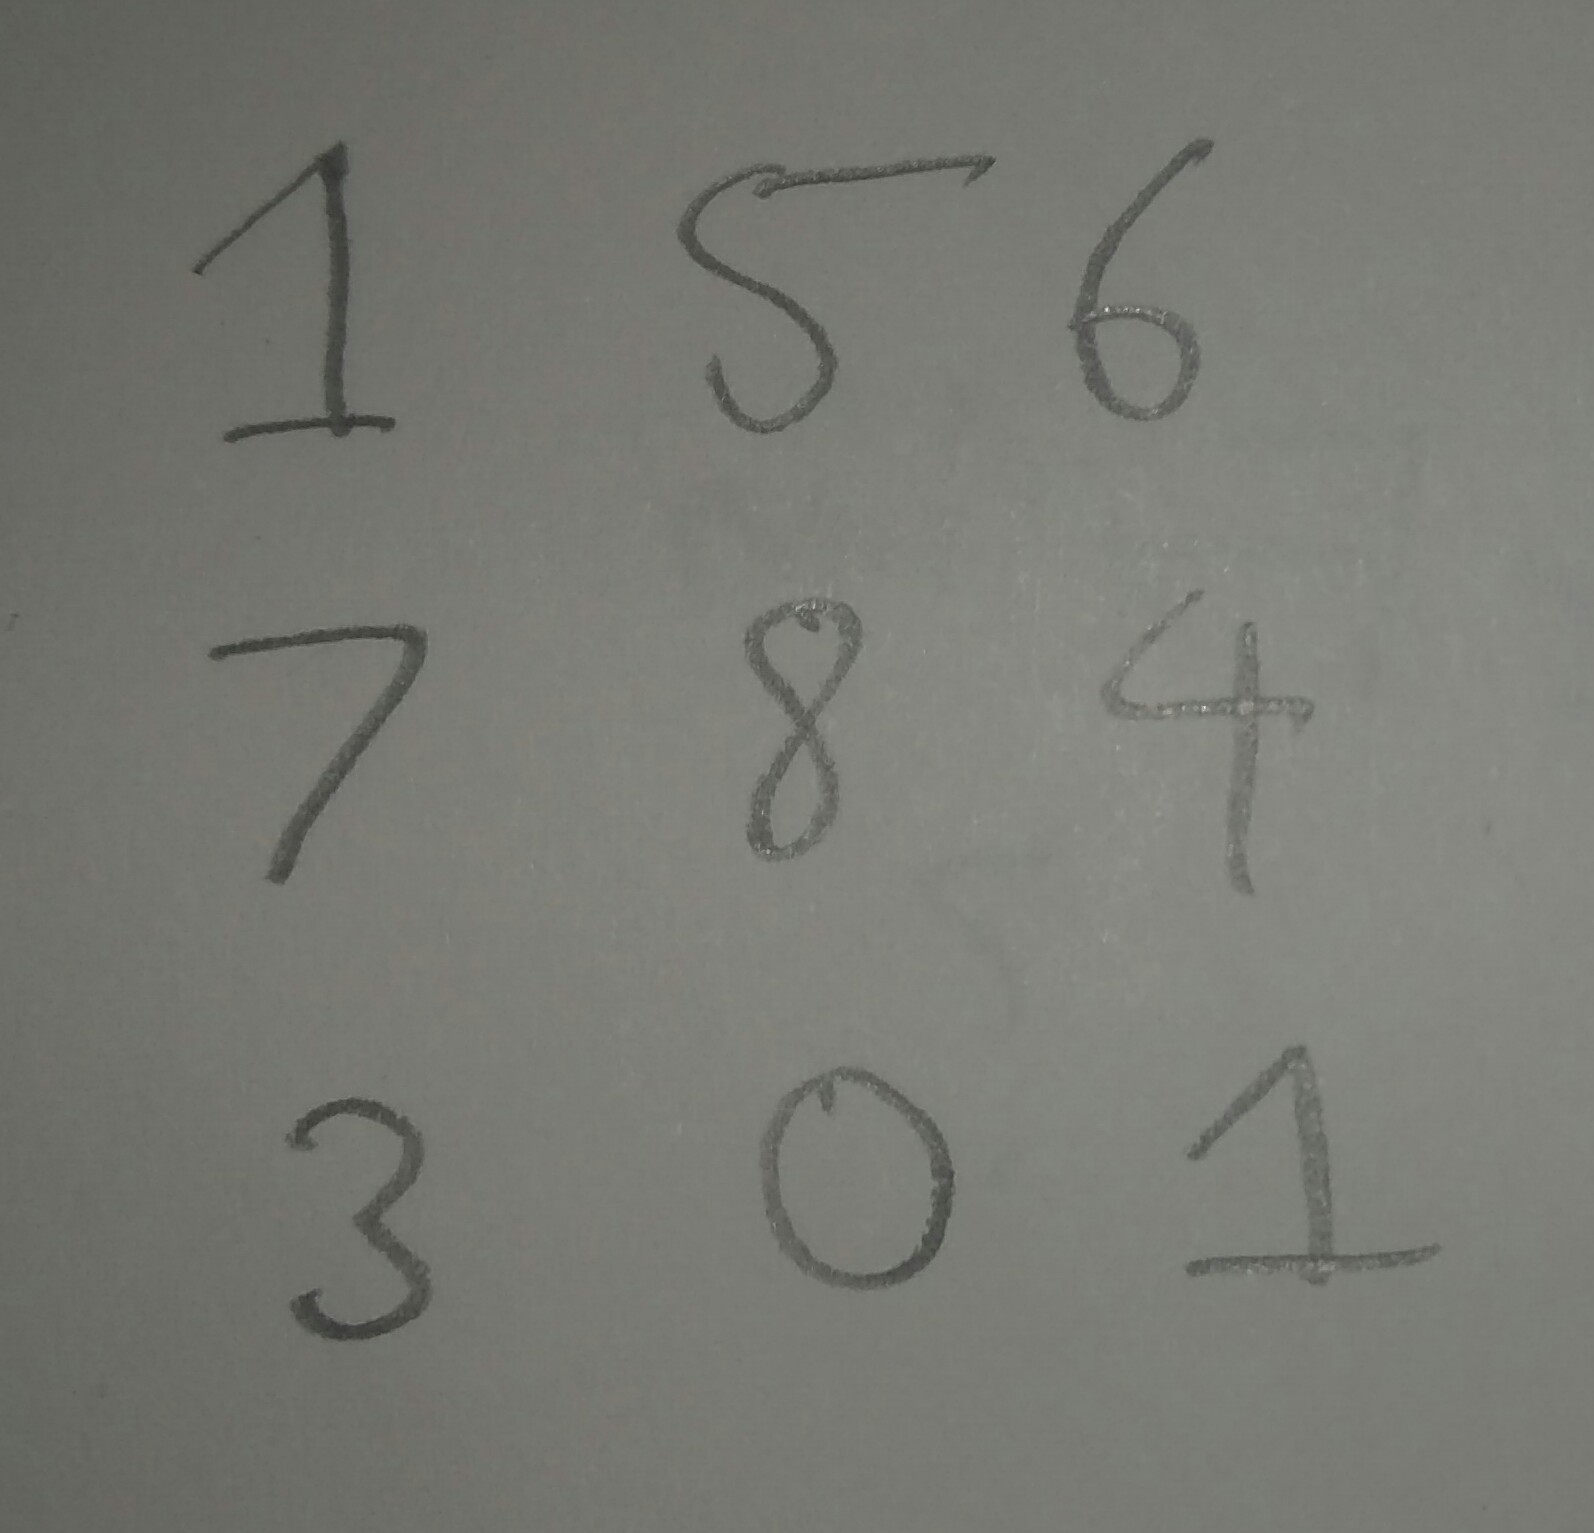 1 5 6
7 8 4
3 0 1